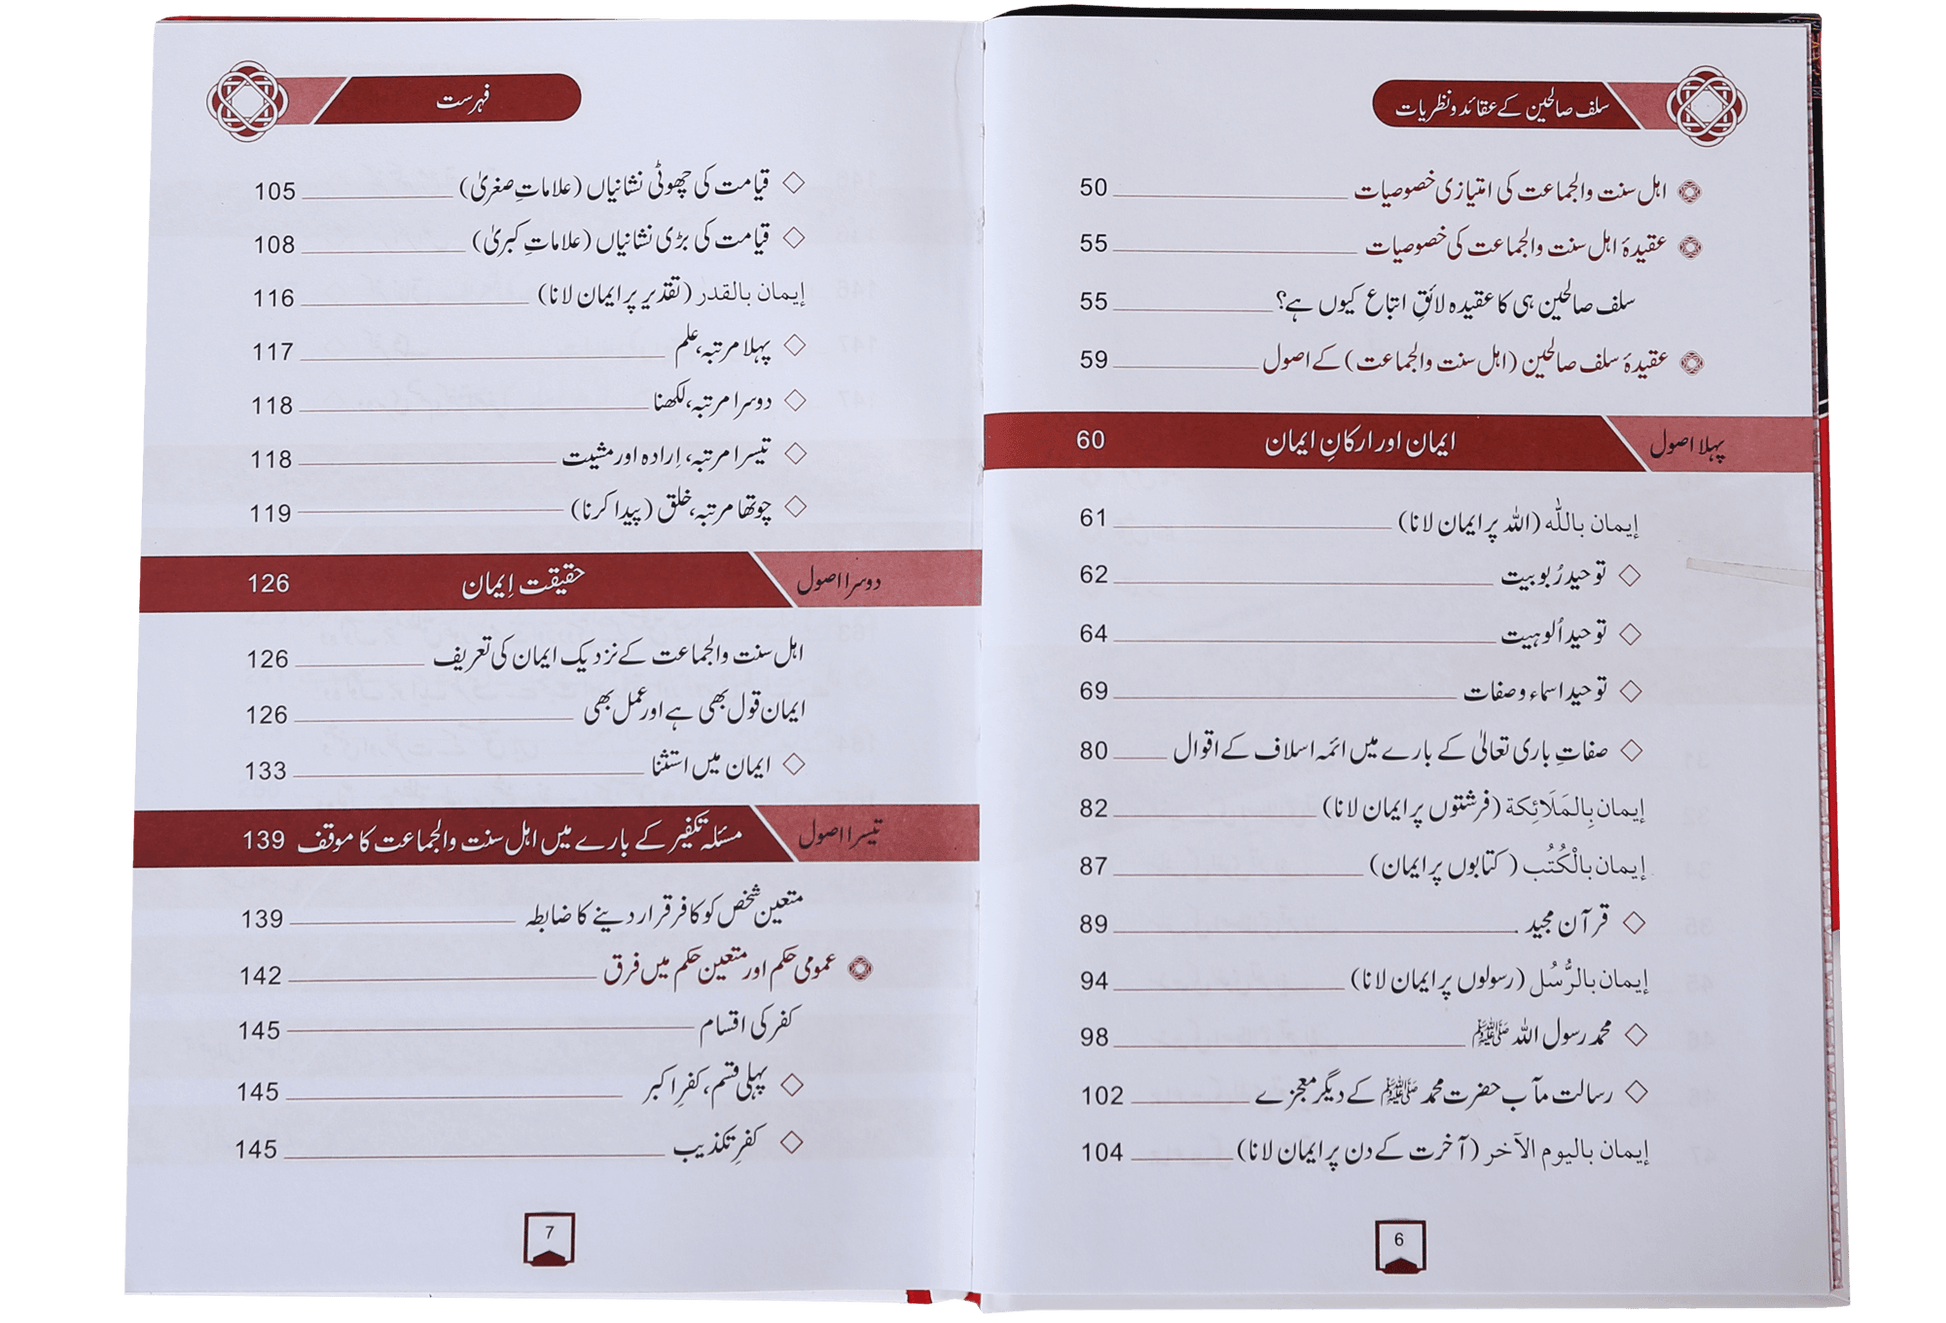 سلف صالحین کے عقائد و نظریات
اہل سنت والجماعت کی امتیازی خصوصیات 50
عقیدۂ اہل سنت والجماعت کی خصوصیات 55
سلف صالحین ہی کا عقیدہ لائقِ اتباع کیوں ہے؟ 55
عقیدۂ سلف صالحین (اہل سنت والجماعت) کے اصول 59
پہلا اصول ایمان اور ارکانِ ایمان 60
إيمان بالله (اللہ پر ایمان لانا) 61
توحید رُبوبیت 62
توحید اُلوہیت 64
توحید اسماء و صفات 69
صفاتِ باری تعالیٰ کے بارے میں ائمہ اسلاف کے اقوال 80
إيمان بِالمَلَائِكة (فرشتوں پر ایمان لانا) 82
إيمان بالْكُتُب (کتابوں پر ایمان) 87
قرآن مجید 89
إيمان بالرُّسُل (رسولوں پر ایمان لانا) 94
محمد رسول اللہ ﷺ 98
رسالت مآب حضرت محمد ﷺ کے دیگر معجزے 102
إيمان باليوم الآخر (آخرت کے دن پر ایمان لانا) 104
6
فہرست
قیامت کی چھوٹی نشانیاں (علاماتِ صغریٰ) 105
قیامت کی بڑی نشانیاں (علاماتِ کبریٰ) 108
إيمان بالقدر (تقدیر پر ایمان لانا) 116
پہلا مرتبہ، علم 117
دوسرا مرتبہ، لکھنا 118
تیسرا مرتبہ، اِرادہ اور مشیت 118
چوتھا مرتبہ، خلق (پیدا کرنا) 119
دوسرا اصول حقیقت اِیمان 126
اہل سنت والجماعت کے نزدیک ایمان کی تعریف 126
ایمان قول بھی ہے اور عمل بھی 126
ایمان میں استثنا 133
تیسرا اصول مسئلہ تکفیر کے بارے میں اہل سنت والجماعت کا موقف 139
متعین شخص کو کافر قرار دینے کا ضابطہ 139
عمومی حکم اور متعین حکم میں فرق 142
کفر کی اقسام 145
پہلی قسم، کفرِ اکبر 145
کفرِ تکذیب 145
7